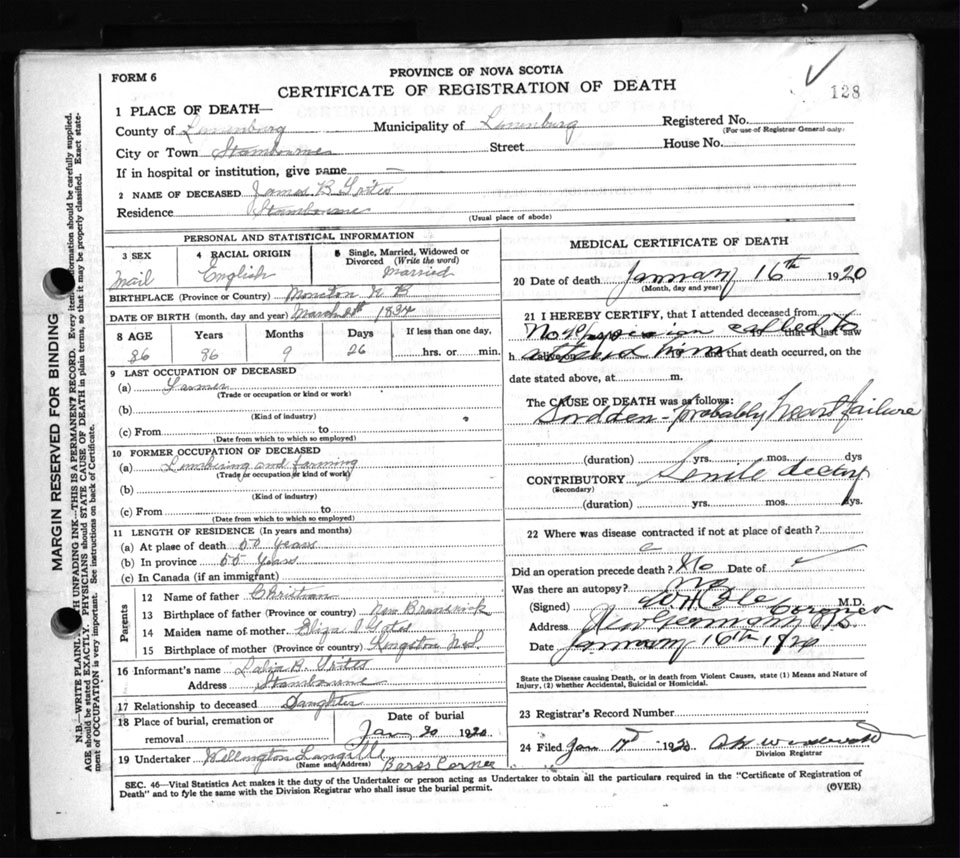 FORM 6
PROVINCE OF NOVA SCOTIA
CERTIFICATE OF REGISTRATION OF DEATH
128
1 PLACE OF DEATH—
County of Lunenburg Municipality of Lunenburg Registered No.
(For use of Registrar General only)
City or Town Street House No.
If in hospital or institution, give name
2 NAME OF DECEASED James B
Residence
(Usual place of abode)
PERSONAL AND STATISTICAL INFORMATION
3 SEX 4 RACIAL ORIGIN 5 Single, Married, Widowed or Divorced (Write the word)
Mail English Married
BIRTHPLACE (Province or Country) Moncton N B
DATE OF BIRTH (month, day and year) March
8 AGE Years Months Days If less than one day,
86 86 9 26 hrs. or min.
9 LAST OCCUPATION OF DECEASED
(a) Farmer
(Trade or occupation or kind of work)
(b)
(Kind of industry)
(c) From to
(Date from which to which so employed)
10 FORMER OCCUPATION OF DECEASED
(a) Lumbering and farming
(Trade or occupation or kind of work)
(b)
(Kind of industry)
(c) From to
(Date from which to which so employed)
11 LENGTH OF RESIDENCE (In years and months)
(a) At place of death 50 years
(b) In province 50 Years
(c) In Canada (if an immigrant)
Parents
12 Name of father Christian
13 Birthplace of father (Province or country) New Brunswick
14 Maiden name of mother Eliza
15 Birthplace of mother (Province or country) Kingston
16 Informant's name B.
Address
17 Relationship to deceased Daughter
18 Place of burial, cremation or removal
Date of burial
Jan 20 1920
19 Undertaker Wellington Langille Barss Corner
(Name and Address)
MEDICAL CERTIFICATE OF DEATH
20 Date of death January 16th 1920
(Month, day and year)
21 I HEREBY CERTIFY, that I attended deceased from
No Physician called to that I last saw
h alive on attend him that death occurred, on the
date stated above, at m.
The CAUSE OF DEATH was as follows:
Sudden - probably heart failure
(duration) yrs. mos. dys
CONTRIBUTORY Senile decay
(Secondary)
(duration) yrs. mos. dys.
22 Where was disease contracted if not at place of death?
Did an operation precede death? No Date of
Was there an autopsy? No
(Signed) Cole Coroner M.D.
Address New Germany
Date January 16th 1920
State the Disease causing Death, or in death from Violent Causes, state (1) Means and Nature of
Injury, (2) whether Accidental, Suicidal or Homicidal.
23 Registrar's Record Number
24 Filed Jan 1920
Division Registrar
SEC. 46—Vital Statistics Act makes it the duty of the Undertaker or person acting as Undertaker to obtain all the particulars required in the "Certificate of Registration of
Death" and to fyle the same with the Division Registrar who shall issue the burial permit.
(OVER)
MARGIN RESERVED FOR BINDING
N.B.—WRITE PLAINLY, UNFADING INK—THIS IS A PERMANENT RECORD. Every item information should be carefully supplied.
AGE should be stated EXACTLY. PHYSICIANS should STATE CAUSE OF DEATH in plain terms, so that it may be properly classified. Exact state-
ment of OCCUPATION is very important. See instructions on back of Certificate.